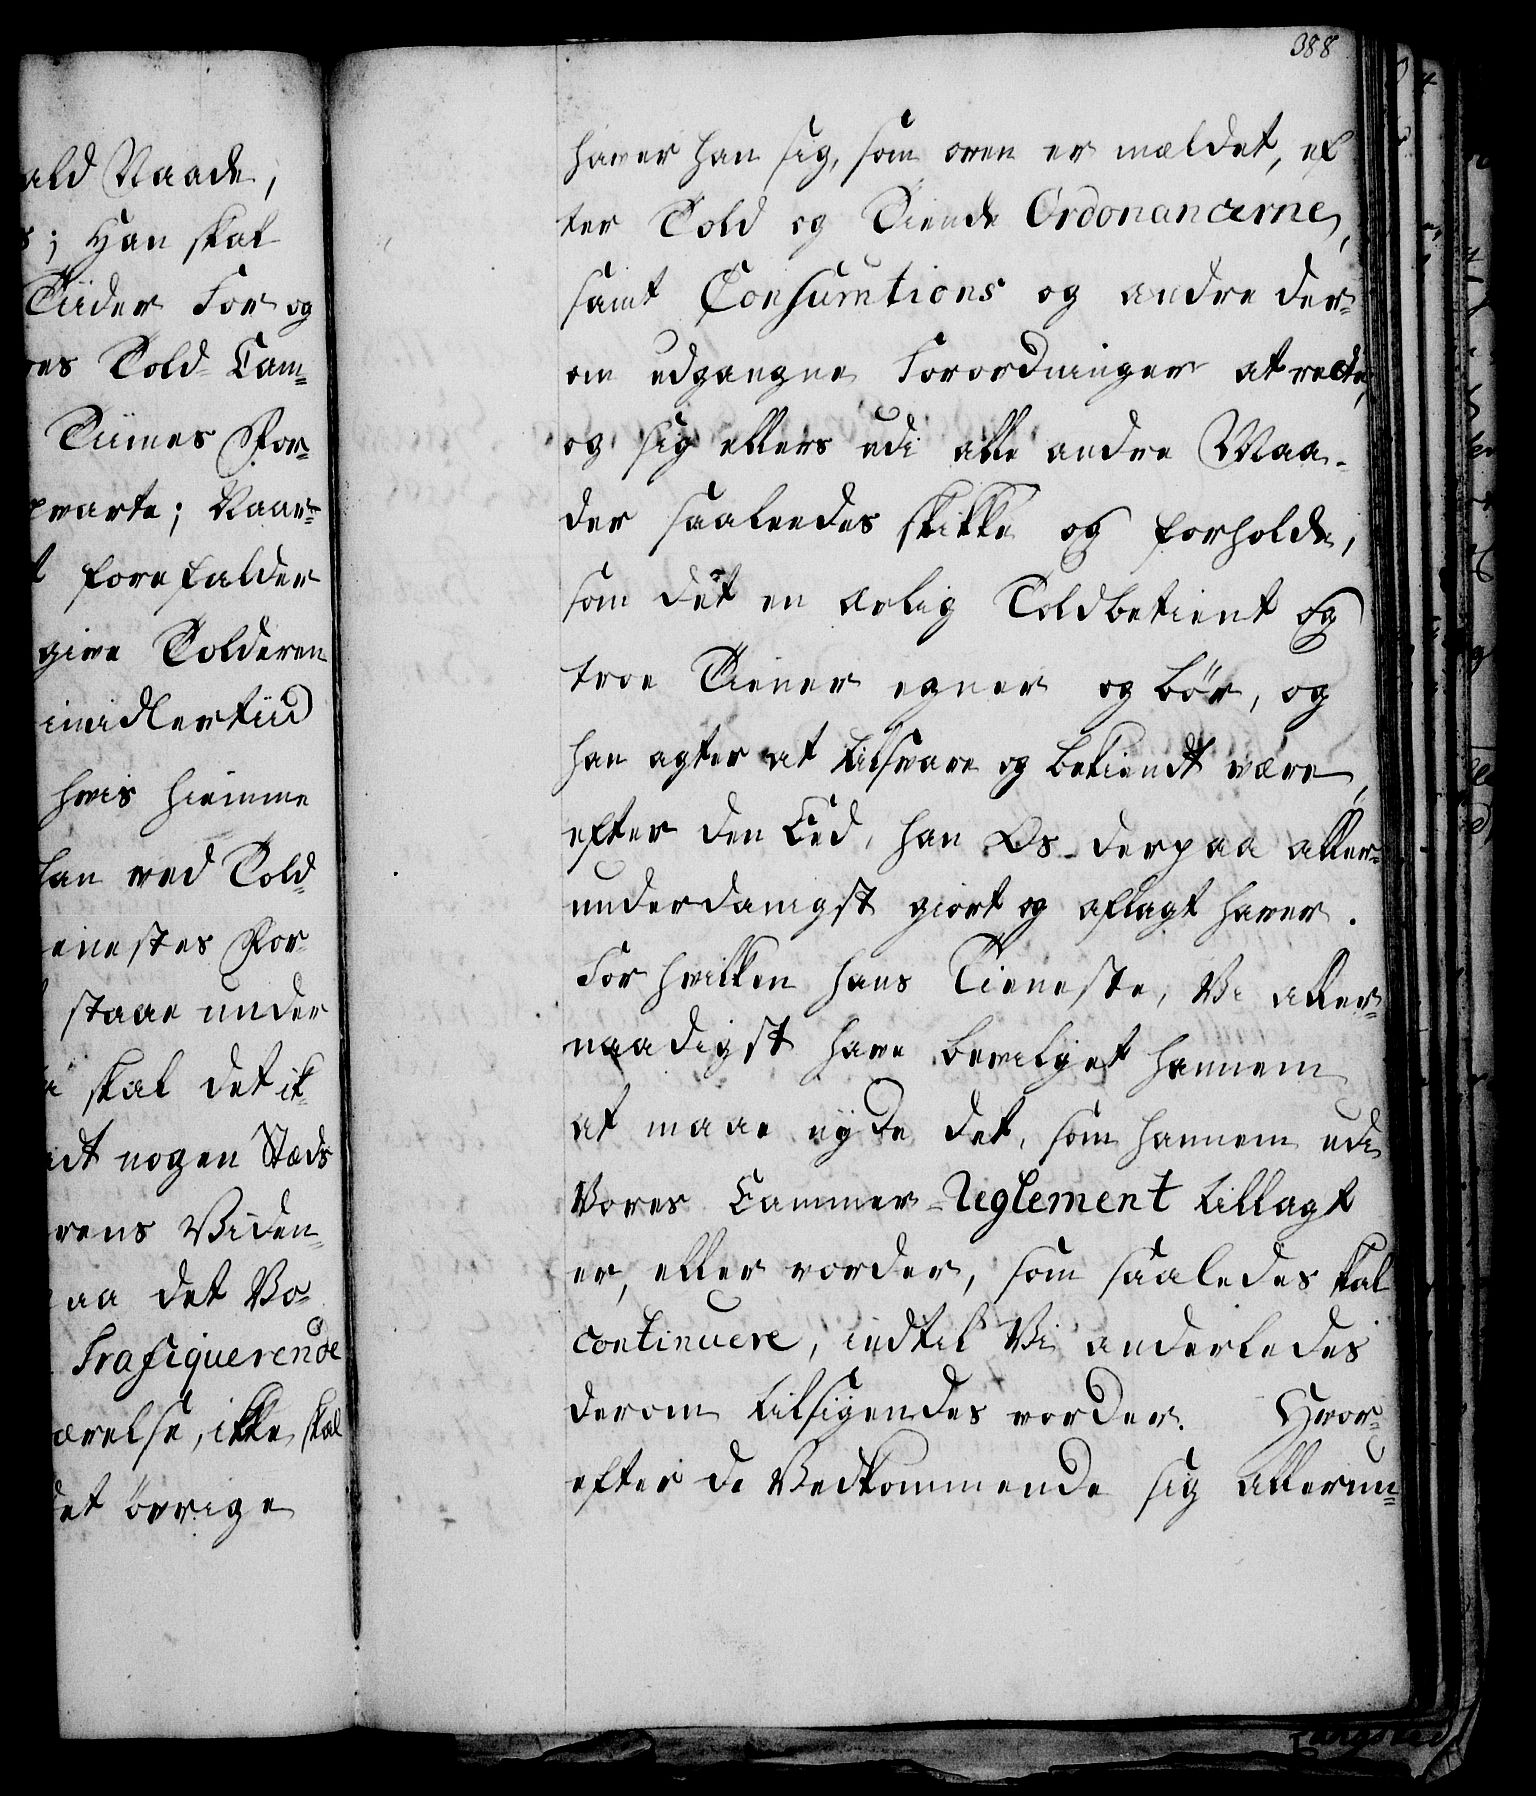 388
ald Naade,
; Han skal
Tiider For og
res Told-Cam-
Tiimes For-
pvarte; Naar
forefalder
give Tolderen
imidlertiid
hvis hiemme
han ved Told-
enestes For
staae under
skal det ik-
idt nogen Stæds
rens Viden-
aa det Vo-
Trafiquerende
ærelse, ikke skal
det øvrige
haver han sig, som oven er meldet, ef
ter Told og Tiende Ordonancerne,
samt Consumtions og andre der-
om udgangne Forordninger at rette,
og sig ellers udi alle andre Maa-
der saaleedes skikke og forholde,
som det en ærlig Toldbetient og
troe Tiener egner og bør, og
han agter at tilsvare og bekiendt være,
efter den Eed, han Os derpaa aller-
underdanigst giort og aflagt haver.
For hvilken hans Tieneste, Vi aller-
naadigst have bevilget hannem
at maae nyde det, som hannem udi
Vores Cammer-Reglement tillagt
er, eller vorder, som saaledes skal
continuere, indtil Vi anderledes
derom tilsigendes vorder. Hvor-
efter de Vedkommende sig allerun-